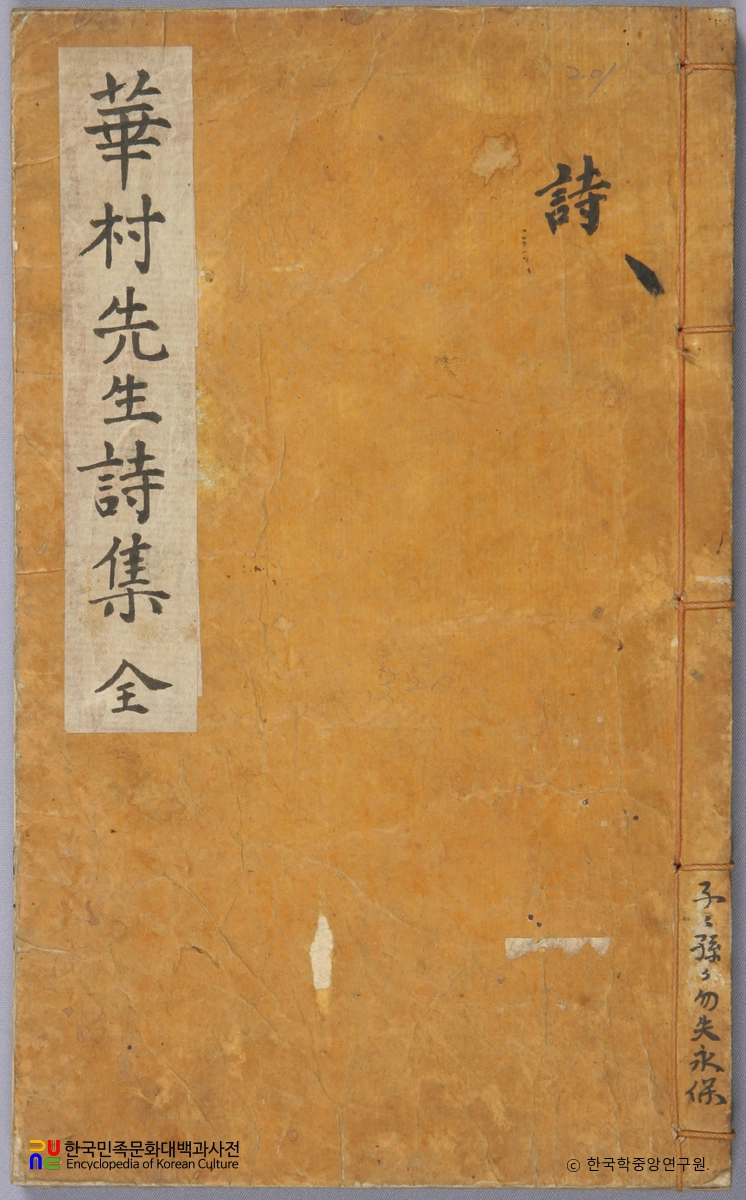 華村先生詩集 全
詩
子〻孫〻勿失永保
201
한국민족문화대백과사전
Encyclopedia of Korean Culture
© 한국학중앙연구원.